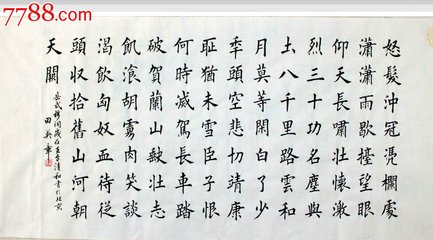 7788.com
怒髮沖冠凭欄處
瀟瀟雨歇擡望眼
仰天長嘯壯懷激
烈三十功名塵與
土八千里路雲和
月莫等閑白了少
年頭空悲切靖康
恥猶未雪臣子恨
何時滅駕長車踏
破賀蘭山缺壯志
飢飡胡虜肉笑談
渴飲匈奴血待從
頭收拾舊山河朝
天闕
岳武穆詞歲在清和書於北京
田英章